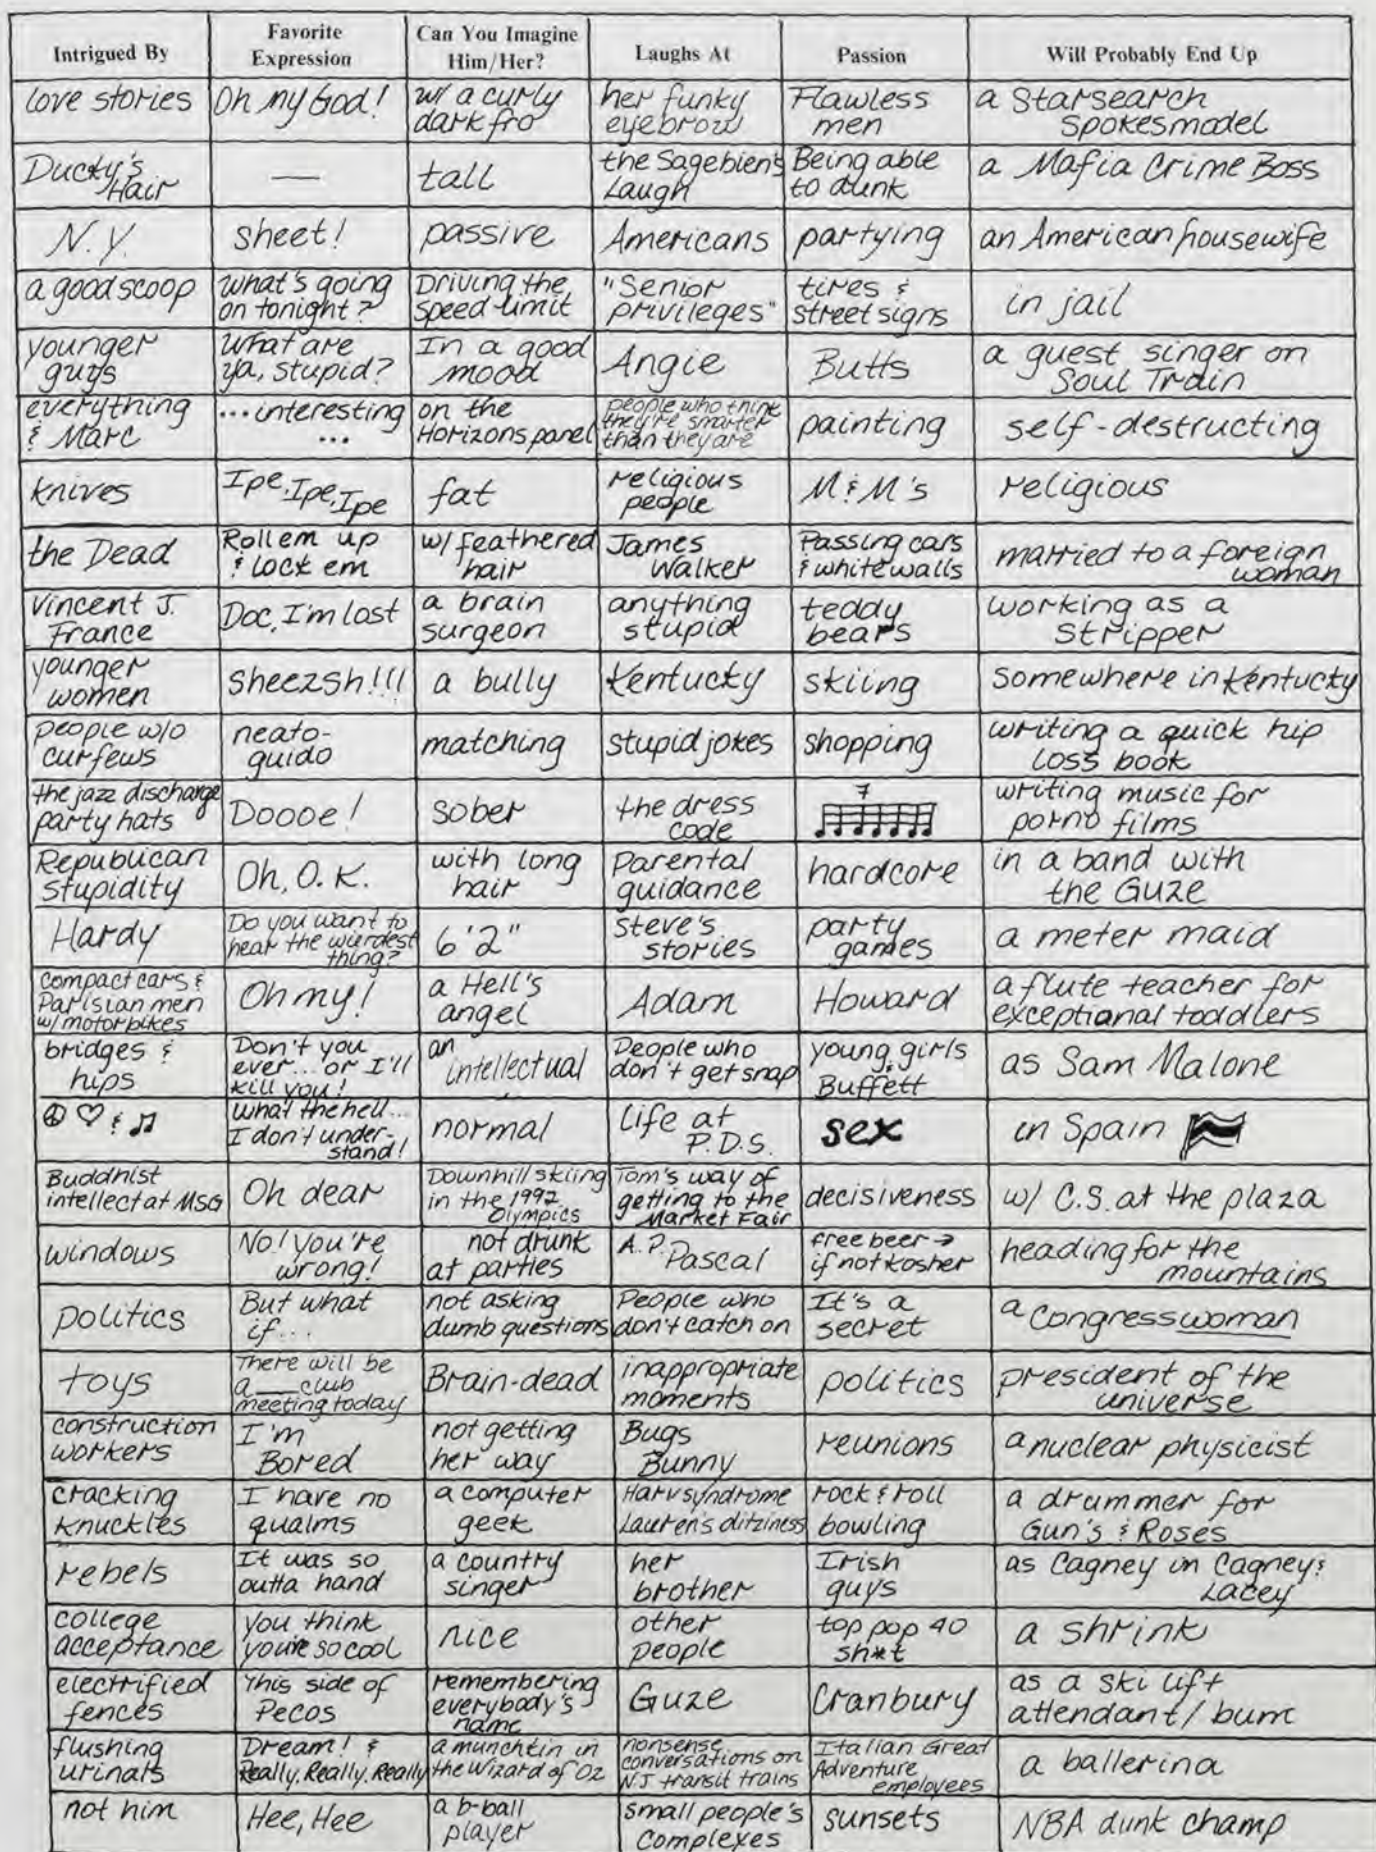 Intrigued By | Favorite Expression | Can You Imagine Him/Her? | Laughs At | Passion | Will Probably End Up
love stories | Oh my God! | w/ a curly dark fro | her funky eyebrow | Flawless men | a Starsearch spokesmodel
Ducky's Hair | — | tall | the Sagebien's Laugh | Being able to dunk | a Mafia Crime Boss
N.Y. | sheet! | passive | Americans | partying | an American housewife
a good scoop | what's going on tonight? | Driving the speed limit | "Senior privileges" | tires & street signs | in jail
younger guys | What are ya, stupid? | In a good mood | Angie | Butts | a guest singer on Soul Train
everything & Marc | ...interesting ... | on the Horizons panel | people who think they're smarter than they are | painting | self-destructing
knives | Ipe, Ipe, Ipe | fat | religious people | M & M's | religious
the Dead | Roll em up & lock em | w/ feathered hair | James Walker | Passing cars & white walls | married to a foreign woman
Vincent J. France | Doc, I'm lost | a brain surgeon | anything stupid | teddy bears | working as a stripper
younger women | Sheezsh!!!! | a bully | Kentucky | skiing | somewhere in Kentucky
people w/o curfews | neato-guido | matching | stupid jokes | shopping | writing a quick hip loss book
the jazz discharge party hats | Doooe! | sober | the dress code | 7 | writing music for porno films
Republican stupidity | Oh, O.K. | with long hair | Parental guidance | hardcore | in a band with the Guze
Hardy | Do you want to hear the wierdest thing? | 6'2" | Steve's stories | party games | a meter maid
compact cars & Parisian men w/ motorbikes | Oh my! | a Hell's angel | Adam | Howard | a flute teacher for exceptional toddlers
bridges & hips | Don't you ever... or I'll kill you! | an intellectual | People who don't get snap | young girls & Buffett | as Sam Malone
☮ ♡ & ♫ | What the hell... I don't under-stand! | normal | Life at P.D.S. | sex | in Spain
Buddhist intellect at MSG | Oh dear | Downhill skiing in the 1992 Olympics | Tom's way of getting to the Market Fair | decisiveness | w/ C.S. at the plaza
windows | No! you're wrong! | not drunk at parties | A.P. Pascal | free beer → if not kosher | heading for the mountains
politics | But what if... | not asking dumb questions | People who don't catch on | It's a secret | a Congresswoman
toys | There will be a ___ club meeting today | Brain-dead | inappropriate moments | politics | president of the universe
construction workers | I'm Bored | not getting her way | Bugs Bunny | reunions | a nuclear physicist
cracking knuckles | I have no qualms | a computer geek | Harv syndrome Lauren's ditziness | rock & roll bowling | a drummer for Gun's & Roses
rebels | It was so outta hand | a country singer | her brother | Irish guys | as Cagney in Cagney & Lacey
college acceptance | you think you're so cool | nice | other people | top pop 40 sh*t | a shrink
electrified fences | This side of Pecos | remembering everybody's name | Guze | Cranbury | as a ski lift attendant/bum
flushing urinals | Dream! & Really, Really, Really | a munchkin in the Wizard of Oz | nonsense conversations on NJ transit trains | Italian Great Adventure employees | a ballerina
not him | Hee, Hee | a b-ball player | small people's complexes | sunsets | NBA dunk champ